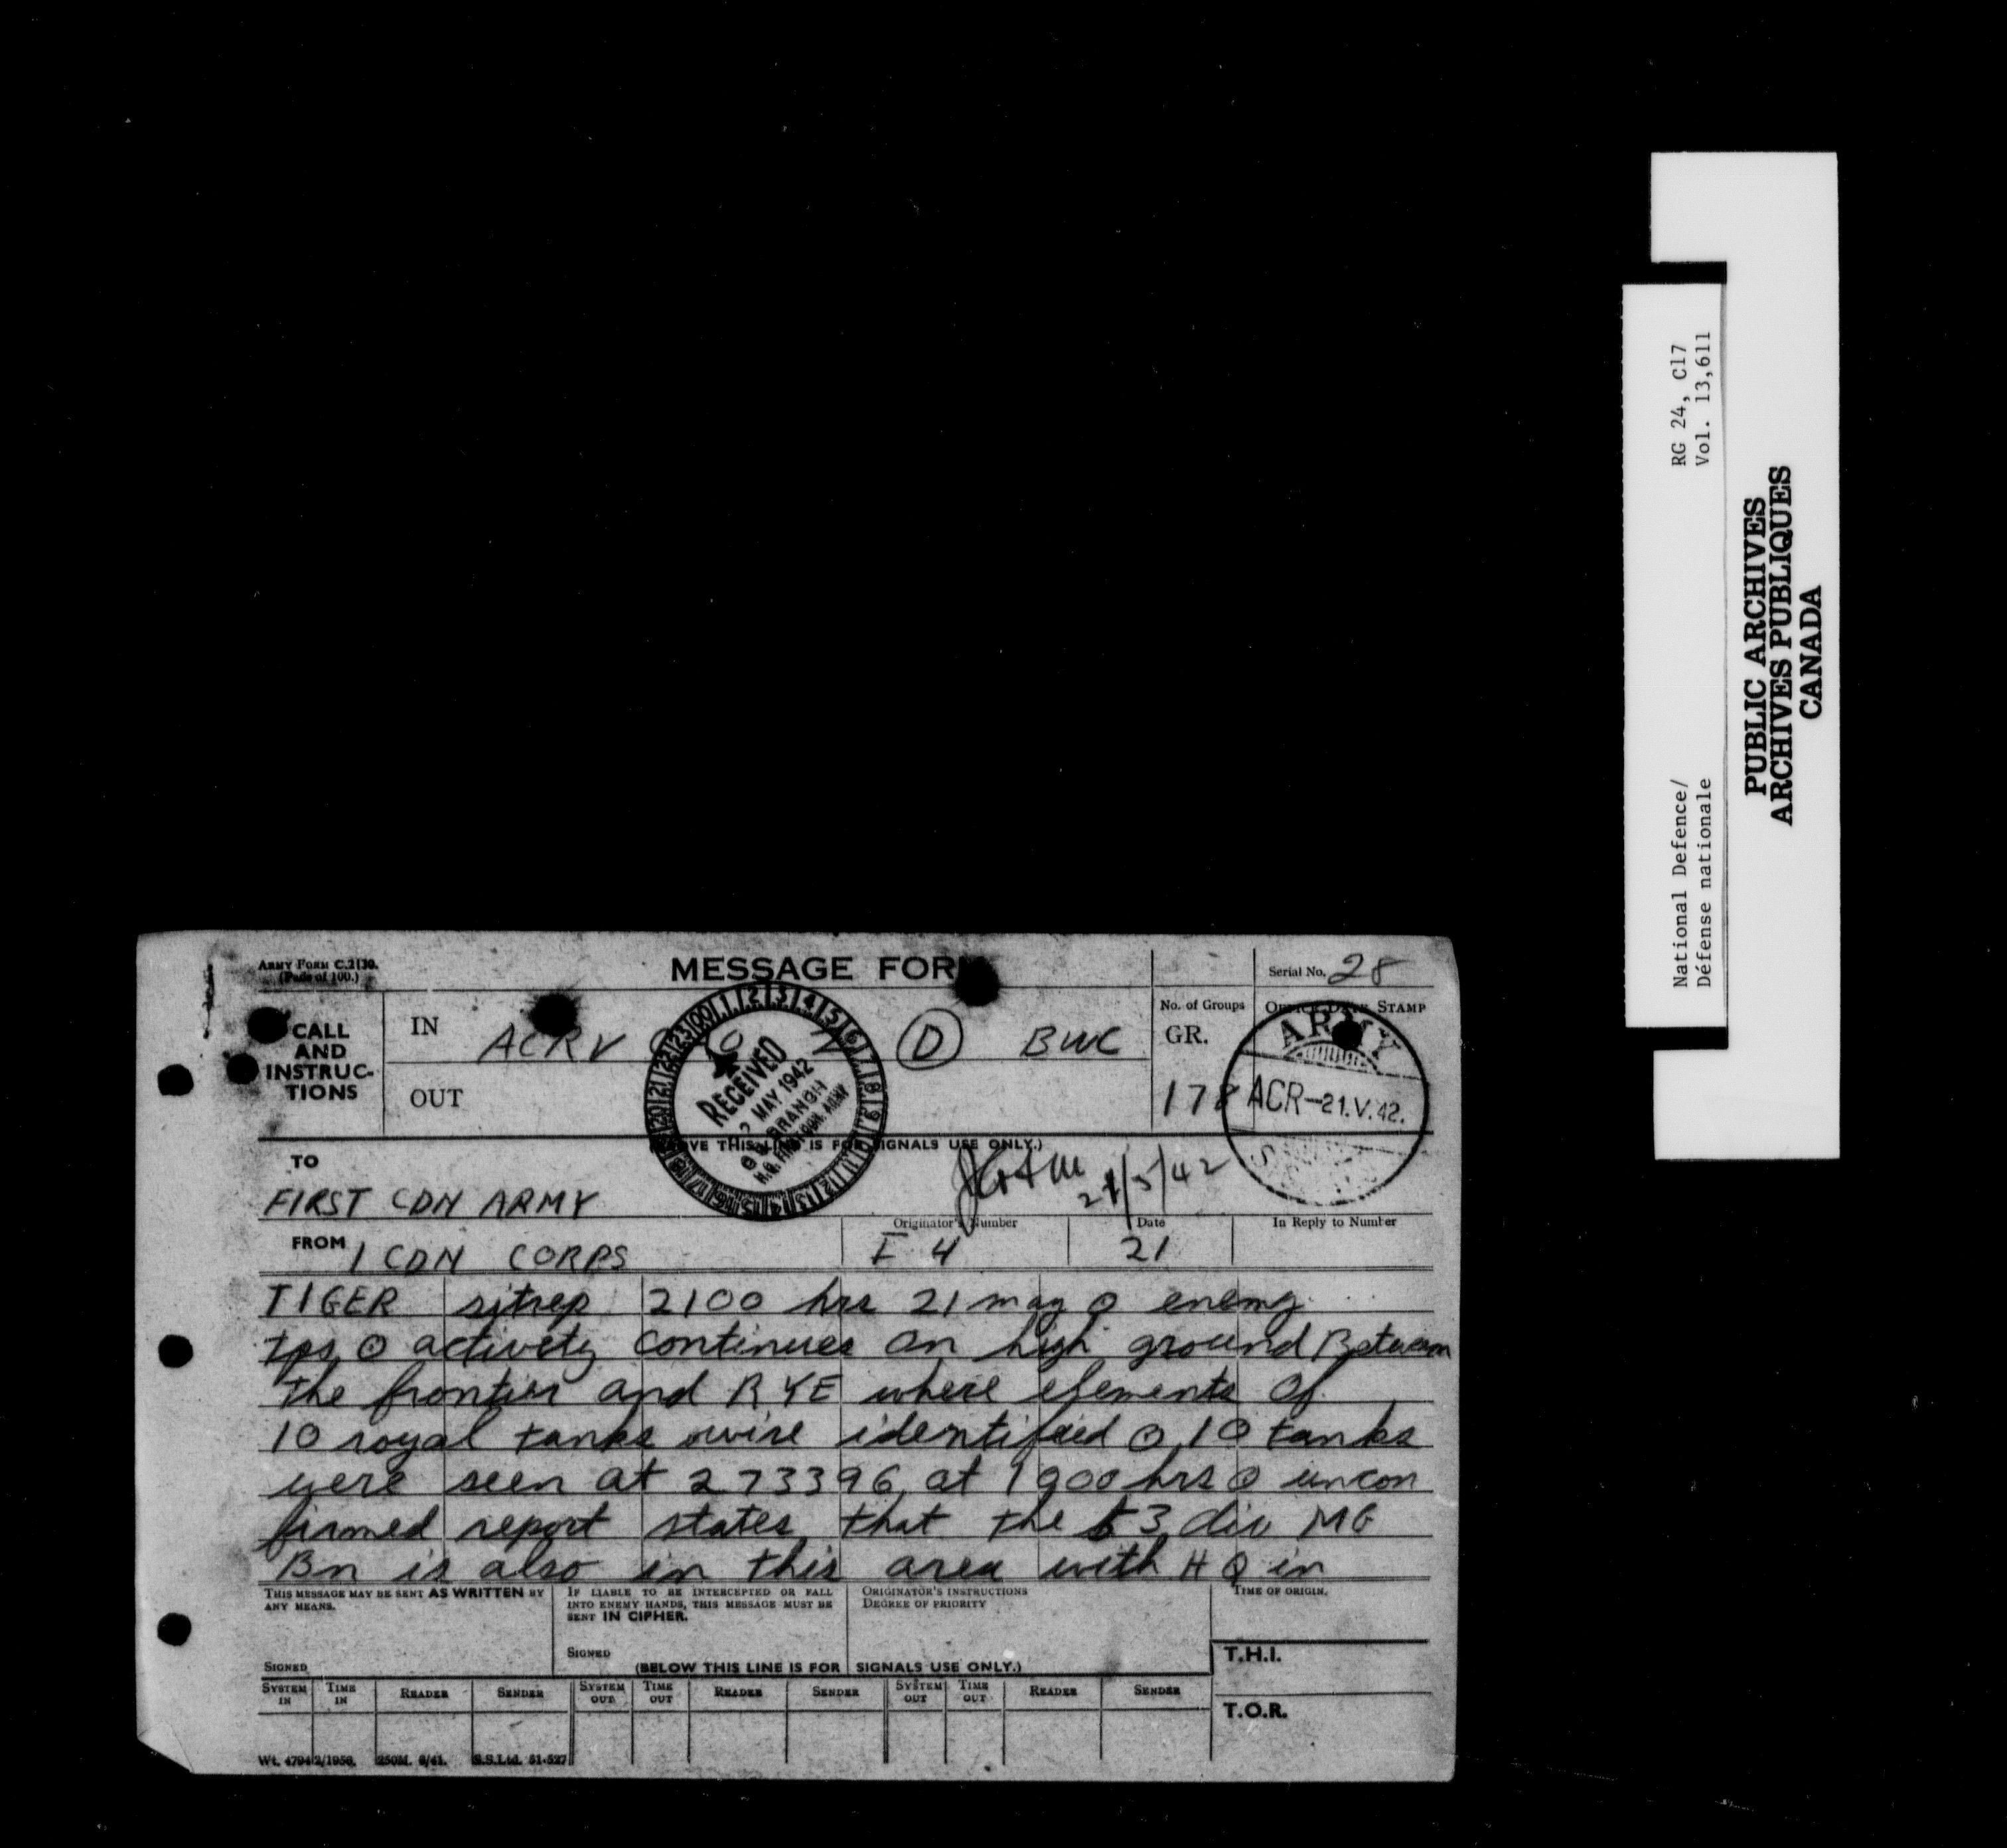 ARMY FORM C.2130.
(Pads of 100.)
MESSAGE FORM
Serial No. 28
CALL AND INSTRUCTIONS
IN
ACRV
D
BWC
OUT
No. of Groups
GR.
178
OFFICE DATE STAMP
ARMY
ACR-21.V.42.
RECEIVED
MAY 1942
BRANCH
(ABOVE THIS LINE IS FOR SIGNALS USE ONLY.)
TO
FIRST CDN ARMY
21/5/42
FROM 1 CDN CORPS
Originator's Number
I 4
Date
21
In Reply to Number
TIGER sitrep 2100 hrs 21 may o enemy
tps o activety continues on high ground Between
the frontier and RYE where elements of
10 royal tanks were identified o 10 tanks
were seen at 273396 at 1900 hrs o uncon
firmed report states that the 53 div MG
Bn is also in this area with HQ in
THIS MESSAGE MAY BE SENT AS WRITTEN BY ANY MEANS.
SIGNED
IF LIABLE TO BE INTERCEPTED OR FALL INTO ENEMY HANDS, THIS MESSAGE MUST BE SENT IN CIPHER.
SIGNED
ORIGINATOR'S INSTRUCTIONS
DEGREE OF PRIORITY
TIME OF ORIGIN.
(BELOW THIS LINE IS FOR SIGNALS USE ONLY.)
T.H.I.
T.O.R.
SYSTEM IN TIME IN READER SENDER SYSTEM OUT TIME OUT READER SENDER SYSTEM OUT TIME OUT READER SENDER
Wt. 47942/1956. 250M. 6/41. S.S.Ltd. 51-527
National Defence/
Défense nationale
RG 24, C17
Vol. 13,611
PUBLIC ARCHIVES
ARCHIVES PUBLIQUES
CANADA